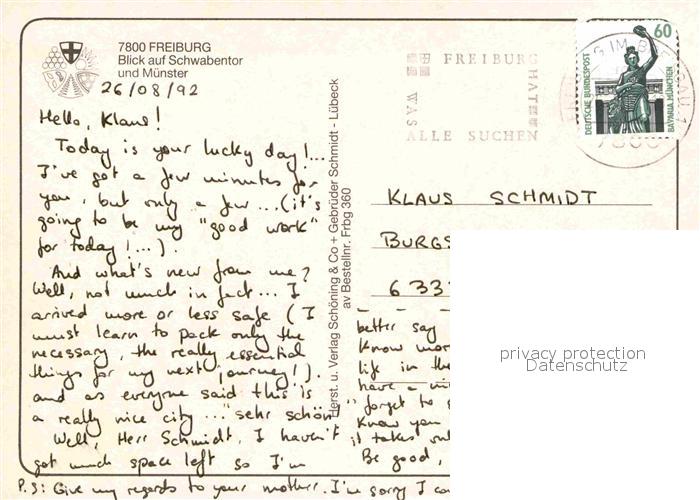 7800 FREIBURG
Blick auf Schwabentor
und Münster
26/08/92
Hello, Klaus!
Today is your lucky day!...
I've got a few minutes for
you, but only a few...(it's
going to be my "good work"
for today!...).
And what's new from me?
Well, not much in fact... I
arrived more or less safe (I
must learn to pack only the
necessary, the really essential
things for my next journey!).
and as everyone said this is
a really nice city... "sehr schön!"
Well, Herr Schmidt, I haven't
got much space left so I'm
P.S: Give my regards to your mother. I'm sorry I
Herst. u. Verlag Schöning & Co + Gebrüder Schmidt - Lübeck
av Bestellnr. Frbg 360
FREIBURG
HAT
WAS
ALLE SUCHEN
60
DEUTSCHE BUNDESPOST
BAVARIA MÜNCHEN
KLAUS SCHMIDT
BURGS
633
better say
know mor
life in the
have a
forget to
know you
it takes
Be good,
privacy protection
Datenschutz